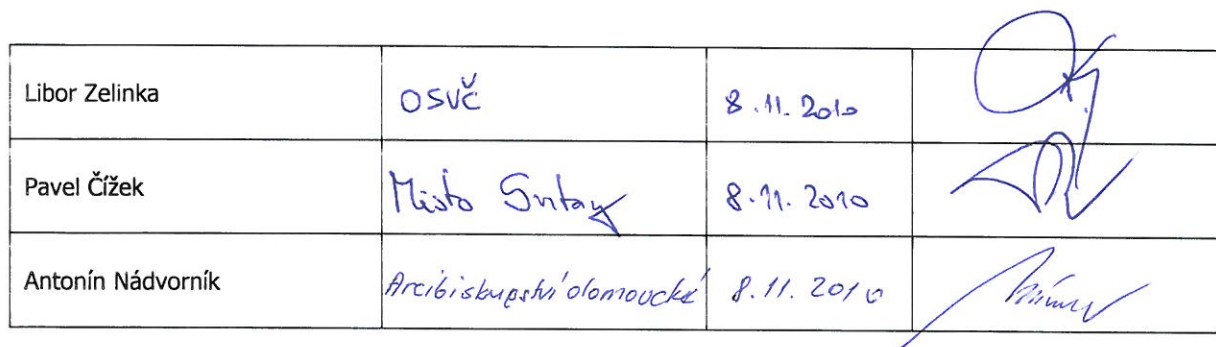 Libor Zelinka OSVČ 8.11.2010
Pavel Čížek Město Svitavy 8.11.2010
Antonín Nádvorník Arcibiskupství olomoucké 8.11.2010